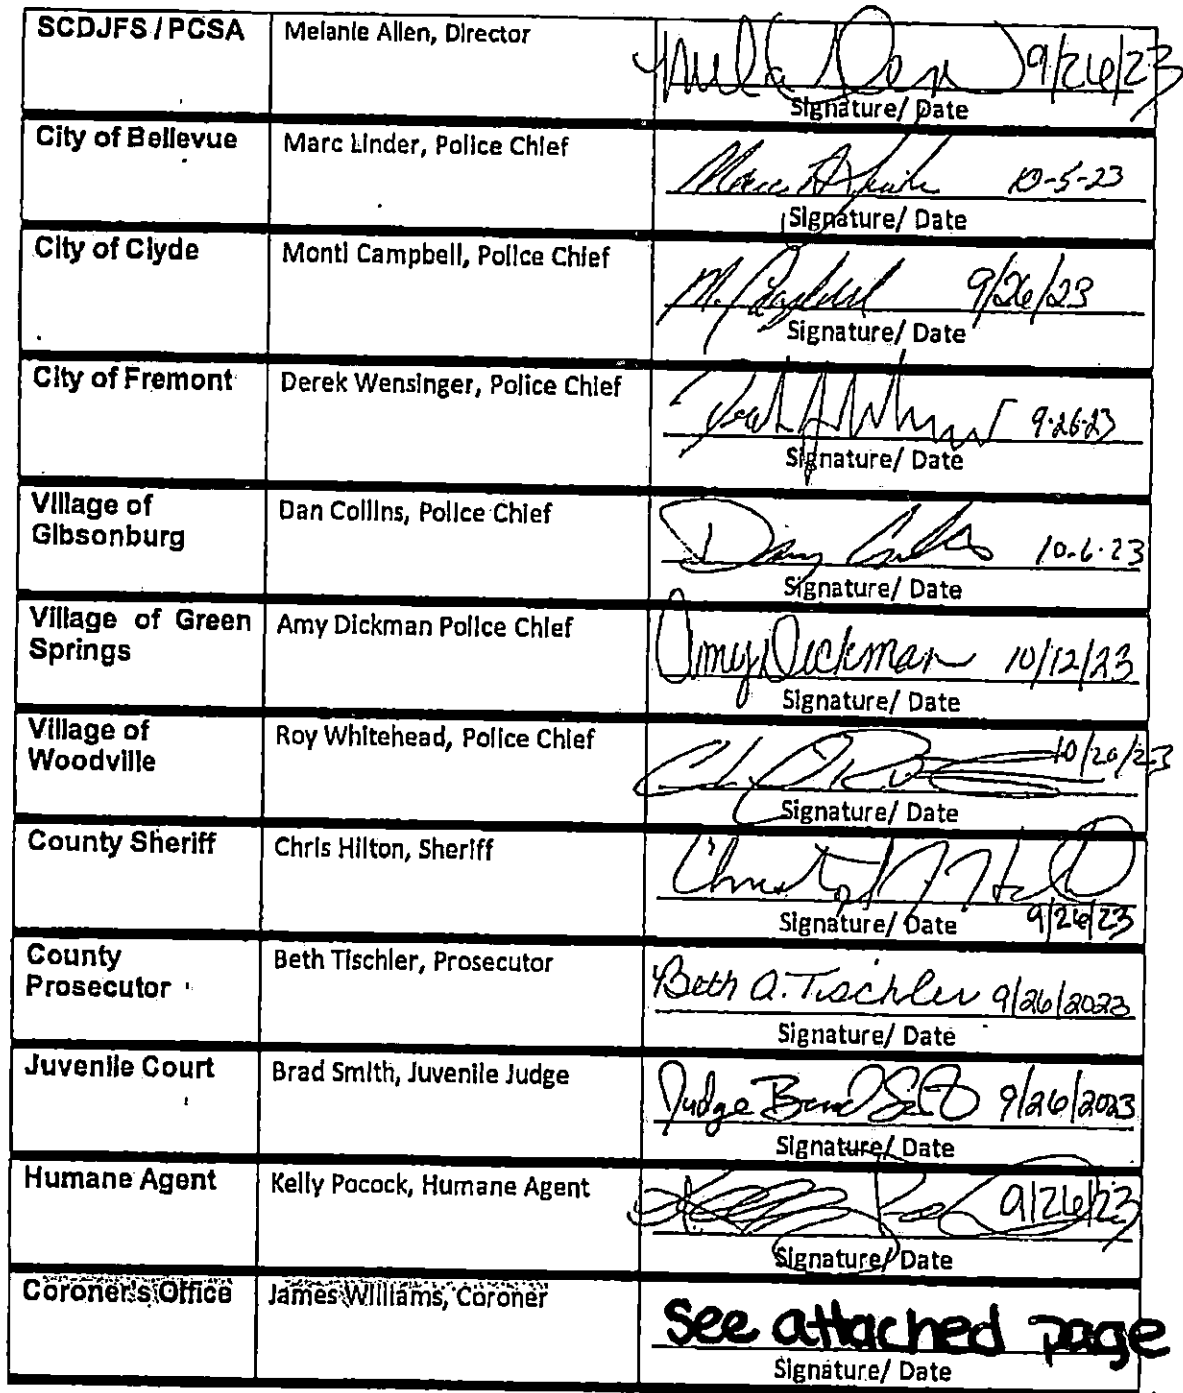 SCDJFS / PCSA
Melanie Allen, Director
9/26/23
Signature/ Date
City of Bellevue
Marc Linder, Police Chief
10-5-23
Signature/ Date
City of Clyde
Monti Campbell, Police Chief
M. Campbell 9/26/23
Signature/ Date
City of Fremont
Derek Wensinger, Police Chief
9-26-23
Signature/ Date
Village of
Gibsonburg
Dan Collins, Police Chief
10-6-23
Signature/ Date
Village of Green
Springs
Amy Dickman Police Chief
Amy Dickman 10/12/23
Signature/ Date
Village of
Woodville
Roy Whitehead, Police Chief
10/20/23
Signature/ Date
County Sheriff
Chris Hilton, Sheriff
Signature/ Date 9/26/23
County
Prosecutor
Beth Tischler, Prosecutor
Beth A. Tischler 9/26/2023
Signature/ Date
Juvenile Court
Brad Smith, Juvenile Judge
Judge Brad Smith 9/26/2023
Signature/ Date
Humane Agent
Kelly Pocock, Humane Agent
9/26/23
Signature/ Date
Coroner's Office
James Williams, Coroner
See attached page
Signature/ Date